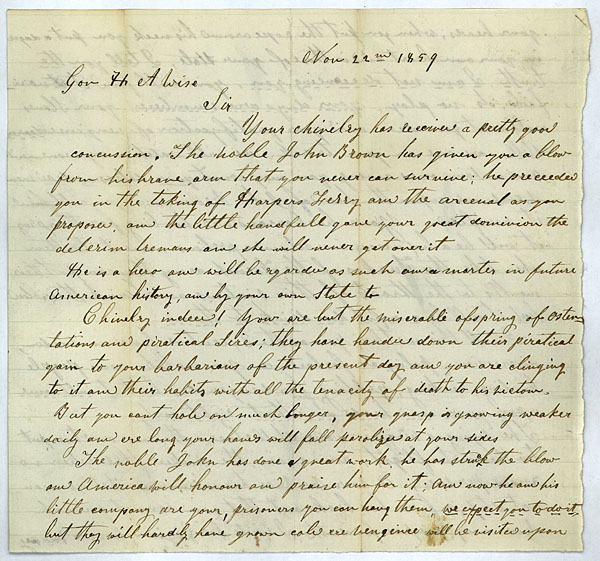 Nov 22nd 1859
Gov H A Wise
Sir
Your chivelry has received a pretty good
concussion. The noble John Brown has given you a blow
from his brave arm that you never can survive; he preceeded
you in the taking of Harpers Ferry and the arcenal as you
proposed, and the little handfull gave your great dominion the
delerim tremans and she will never get over it
He is a hero and will be regarded as such and a marter in future
American history, and by your own State to
Chivelry indeed! Your are but the miserable ofspring of Osten-
tations and piratical Sires; they have handed down their piratical
gain to your barbarians of the present day and you are clinging
to it and their habits with all the tenacity of death to his victom.
But you cant hold on much longer, your grasp is growing weaker
daily and ere long your hands will fall paralized at your sides
The noble John has done a great work, he has struck the blow
and America will honour and praise him for it; And now he and his
little company are your, prisoners you can hang them, we expect you to do it,
but they will hardly have grown cold ere vengence will be visited upon